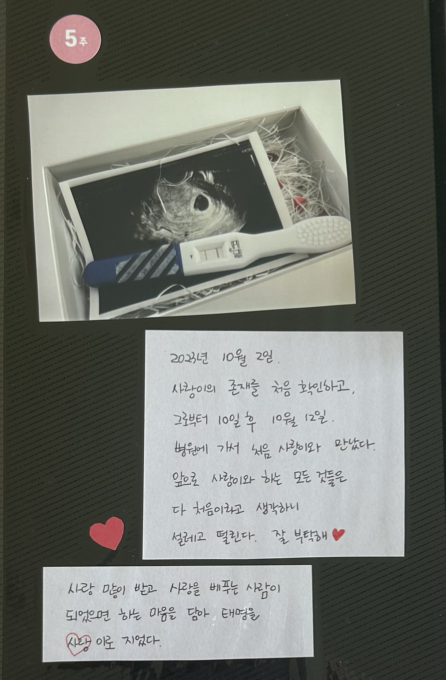 5주
2023년 10월 2일.
사랑이의 존재를 처음 확인하고,
그로부터 10일 후 10월 12일.
병원에 가서 처음 사랑이와 만났다.
앞으로 사랑이와 하는 모든 것들은
다 처음이라고 생각하니
설레고 떨린다. 잘 부탁해 ♥
사랑 많이 받고 사랑을 베푸는 사람이
되었으면 하는 마음을 담아 태명을
사랑이로 지었다.